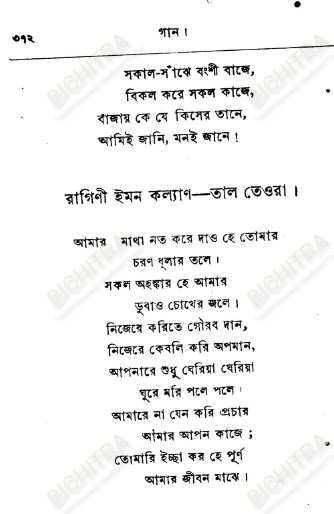 ৩৭২
গান।
সকাল-সাঁঝে বংশী বাজে,
বিকল করে সকল কাজে,
বাজায় কে যে কিসের তানে,
আমিই জানি, মনই জানে!
রাগিণী ইমন কল্যাণ—তাল তেওরা।
আমার মাথা নত করে দাও হে তোমার
চরণ ধূলার তলে।
সকল অহঙ্কার হে আমার
ডুবাও চোখের জলে।
নিজেরে করিতে গৌরব দান,
নিজেরে কেবলি করি অপমান,
আপনারে শুধু ঘেরিয়া ঘেরিয়া
ঘুরে মরি পলে পলে।
আমারে না যেন করি প্রচার
আমার আপন কাজে;
তোমারি ইচ্ছা কর হে পূর্ণ
আমার জীবন মাঝে।
BICHITRA
BICHITRA
BICHITRA
BICHITRA
BICHITRA
BICHITRA